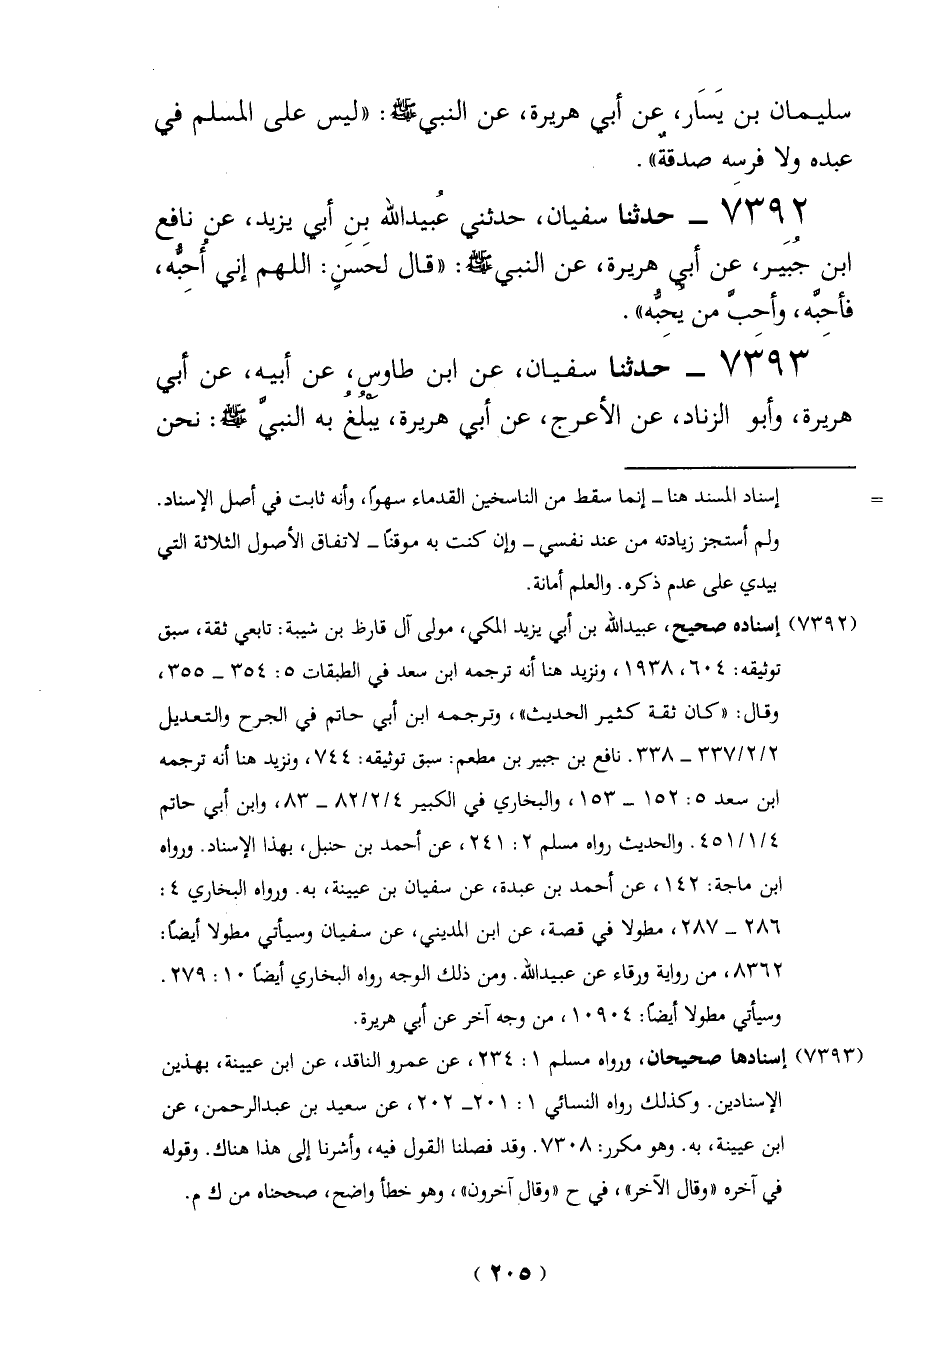 سليمان بن يَسَار، عن أبي هريرة، عن النبي ﷺ: «ليس على المسلم في
عبده ولا فرسِه صدقةٌ».
٧٣٩٢ ـ حدثنا سفيان، حدثني عُبيدالله بن أبي يزيد، عن نافع
ابن جُبَير، عن أبي هريرة، عن النبي ﷺ: «قال لحَسَنٍ: اللهم إني أُحِبُّه،
فأحِبَّه، وأحِبَّ من يُحِبُّه».
٧٣٩٣ ـ حدثنا سفيان، عن ابن طاوسٍ، عن أبيه، عن أبي
هريرة، وأبو الزناد، عن الأعرج، عن أبي هريرة، يَبْلُغُ به النبيَّ ﷺ: نحن
= إسناد المسند هنا ـ إنما سقط من الناسخين القدماء سهوًا، وأنه ثابت في أصل الإسناد.
ولم أستجز زيادته من عند نفسي ـ وإن كنت به موقنًا ـ لاتفاق الأصول الثلاثة التي
بيدي على عدم ذكره. والعلم أمانة.
(٧٣٩٢) إسناده صحيح، عبيدالله بن أبي يزيد المكي، مولى آل قارظ بن شيبة: تابعي ثقة، سبق
توثيقه: ٦٠٤، ١٩٣٨، ونزيد هنا أنه ترجمه ابن سعد في الطبقات ٥: ٣٥٤ ـ ٣٥٥،
وقال: «كان ثقة كثير الحديث»، وترجمه ابن أبي حاتم في الجرح والتعديل
٣٣٧/٢/٢ ـ ٣٣٨. نافع بن جبير بن مطعم: سبق توثيقه: ٧٤٤، ونزيد هنا أنه ترجمه
ابن سعد ٥: ١٥٢ ـ ١٥٣، والبخاري في الكبير ٨٢/٢/٤ ـ ٨٣، وابن أبي حاتم
٤٥١/١/٤. والحديث رواه مسلم ٢: ٢٤١، عن أحمد بن حنبل، بهذا الإسناد. ورواه
ابن ماجة: ١٤٢، عن أحمد بن عبدة، عن سفيان بن عيينة، به. ورواه البخاري ٤:
٢٨٦ ـ ٢٨٧، مطولا في قصة، عن ابن المديني، عن سفيان وسيأتي مطولا أيضًا:
٨٣٦٢، من رواية ورقاء عن عبيدالله. ومن ذلك الوجه رواه البخاري أيضًا ١٠: ٢٧٩.
وسيأتي مطولا أيضًا: ١٠٩٠٤، من وجه آخر عن أبي هريرة.
(٧٣٩٣) إسنادها صحيحان، ورواه مسلم ١: ٢٣٤، عن عمرو الناقد، عن ابن عيينة، بهذين
الإسنادين. وكذلك رواه النسائي ١: ٢٠١ـ ٢٠٢، عن سعيد بن عبدالرحمن، عن
ابن عيينة، به. وهو مكرر: ٧٣٠٨. وقد فصلنا القول فيه، وأشرنا إلى هذا هناك. وقوله
في آخره «وقال الآخر»، في ح «وقال آخرون»، وهو خطأ واضح، صححناه من ك م.
(٢٠٥)